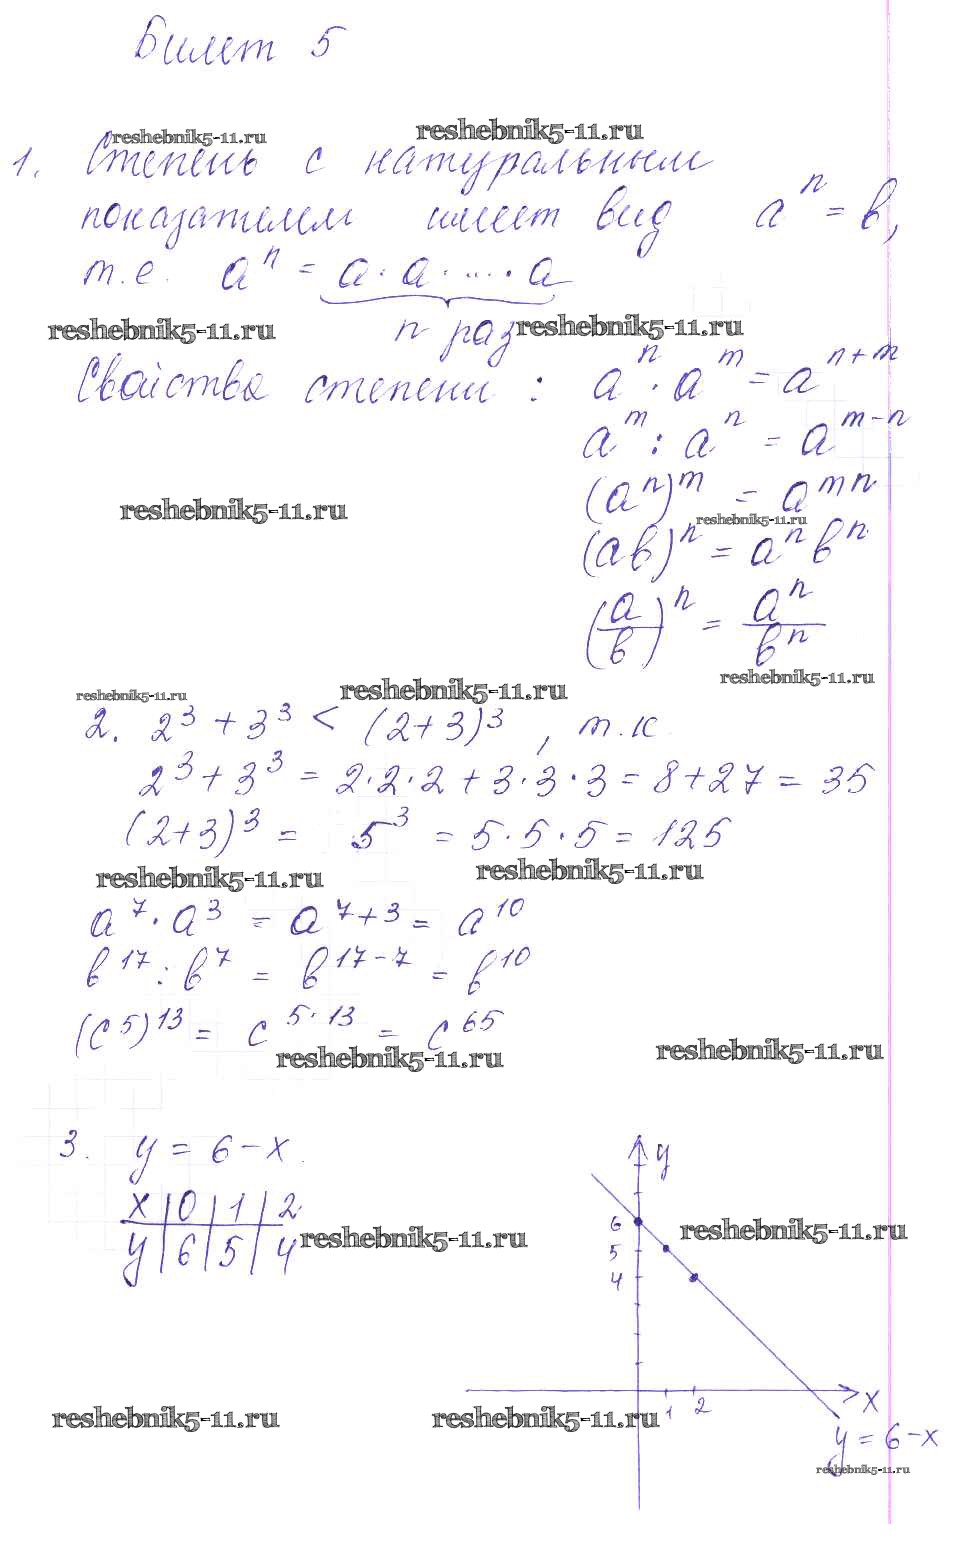 Билет 5
reshebnik5-11.ru reshebnik5-11.ru
1. Степень с натуральным
показателем имеет вид aⁿ = b,
т.е. aⁿ = a · a · ... · a
n раз
reshebnik5-11.ru reshebnik5-11.ru
Свойства степени : aⁿ · aᵐ = aⁿ⁺ᵐ
aᵐ : aⁿ = aᵐ⁻ⁿ
(aⁿ)ᵐ = aᵐⁿ
reshebnik5-11.ru reshebnik5-11.ru
(ab)ⁿ = aⁿbⁿ
(a/b)ⁿ = aⁿ/bⁿ
reshebnik5-11.ru
reshebnik5-11.ru reshebnik5-11.ru
2. 2³ + 3³ < (2+3)³, т.к
2³ + 3³ = 2·2·2 + 3·3·3 = 8+27 = 35
(2+3)³ = 5³ = 5·5·5 = 125
reshebnik5-11.ru reshebnik5-11.ru
a⁷ · a³ = a⁷⁺³ = a¹⁰
b¹⁷ : b⁷ = b¹⁷⁻⁷ = b¹⁰
(c⁵)¹³ = c⁵·¹³ = c⁶⁵
reshebnik5-11.ru reshebnik5-11.ru
3. y = 6 - x.
x | 0 | 1 | 2
y | 6 | 5 | 4
reshebnik5-11.ru reshebnik5-11.ru
y
6
5
4
1 2 x
reshebnik5-11.ru reshebnik5-11.ru
y = 6 - x
reshebnik5-11.ru